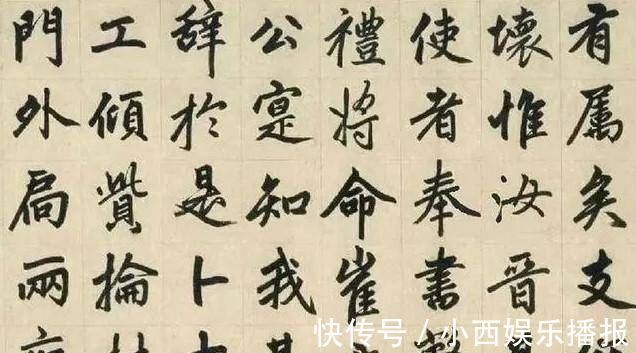 有属矣支
壞惟汝晉
使者奉書
禮將命崔
公寔知我
辭於是卜
工傾貲掄
門外扃兩
快传号 / 小西娱乐播报